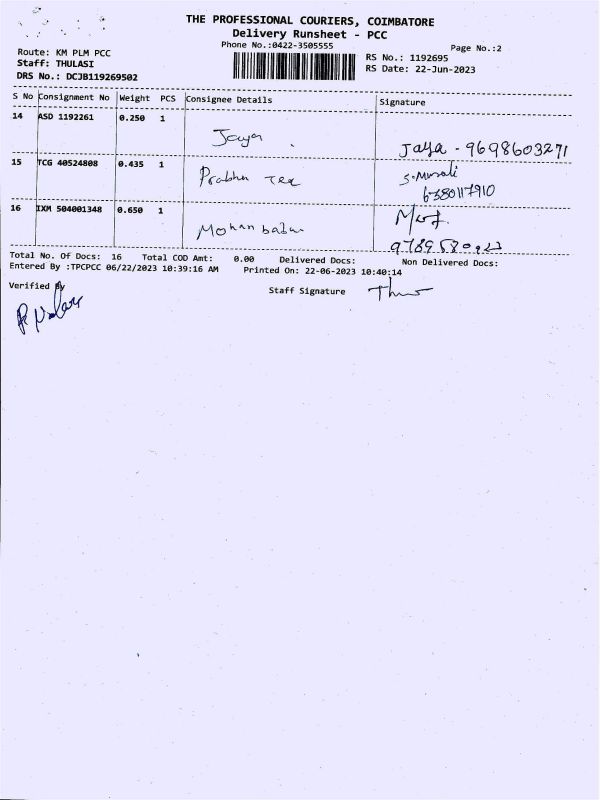 THE PROFESSIONAL COURIERS, COIMBATORE
Delivery Runsheet - PCC
Phone No.:0422-3505555
Page No.:2
Route: KM PLM PCC
Staff: THULASI
DRS No.: DCJB119269502
RS No.: 1192695
RS Date: 22-Jun-2023
S No Consignment No Weight PCS Consignee Details Signature
14 ASD 1192261 0.250 1
Jaya
Jaya - 9698603271
15 TCG 40524808 0.435 1
Prabhu Tex
S. Murali
6380117910
16 IXM 504001348 0.650 1
Mohan
Total No. Of Docs: 16 Total COD Amt: 0.00 Delivered Docs: Non Delivered Docs:
Entered By :TPCPCC 06/22/2023 10:39:16 AM Printed On: 22-06-2023 10:40:14
Verified By
Staff Signature